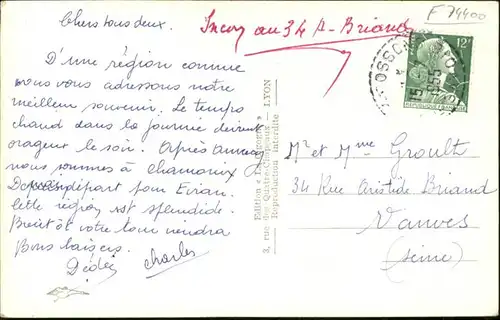 Chers tous deux.
D'une région connue
nous vous adressons notre
meilleur souvenir. Le temps
chaud dans la journée devient
orageux le soir. Après Annecy
nous sommes à Chamonix
départ pour Evian.
Cette région est splendide.
Bientôt votre tour viendra
Bons baisers.
Dédée Charles
au 34 A. Briand
F 74400
12F
15
1955
Edition « La Cigogne »
3, rue des Quatre-Chapeaux - LYON
Reproduction interdite
Mr et Mme Groult
34 Rue Aristide Briand
Vanves
(Seine)